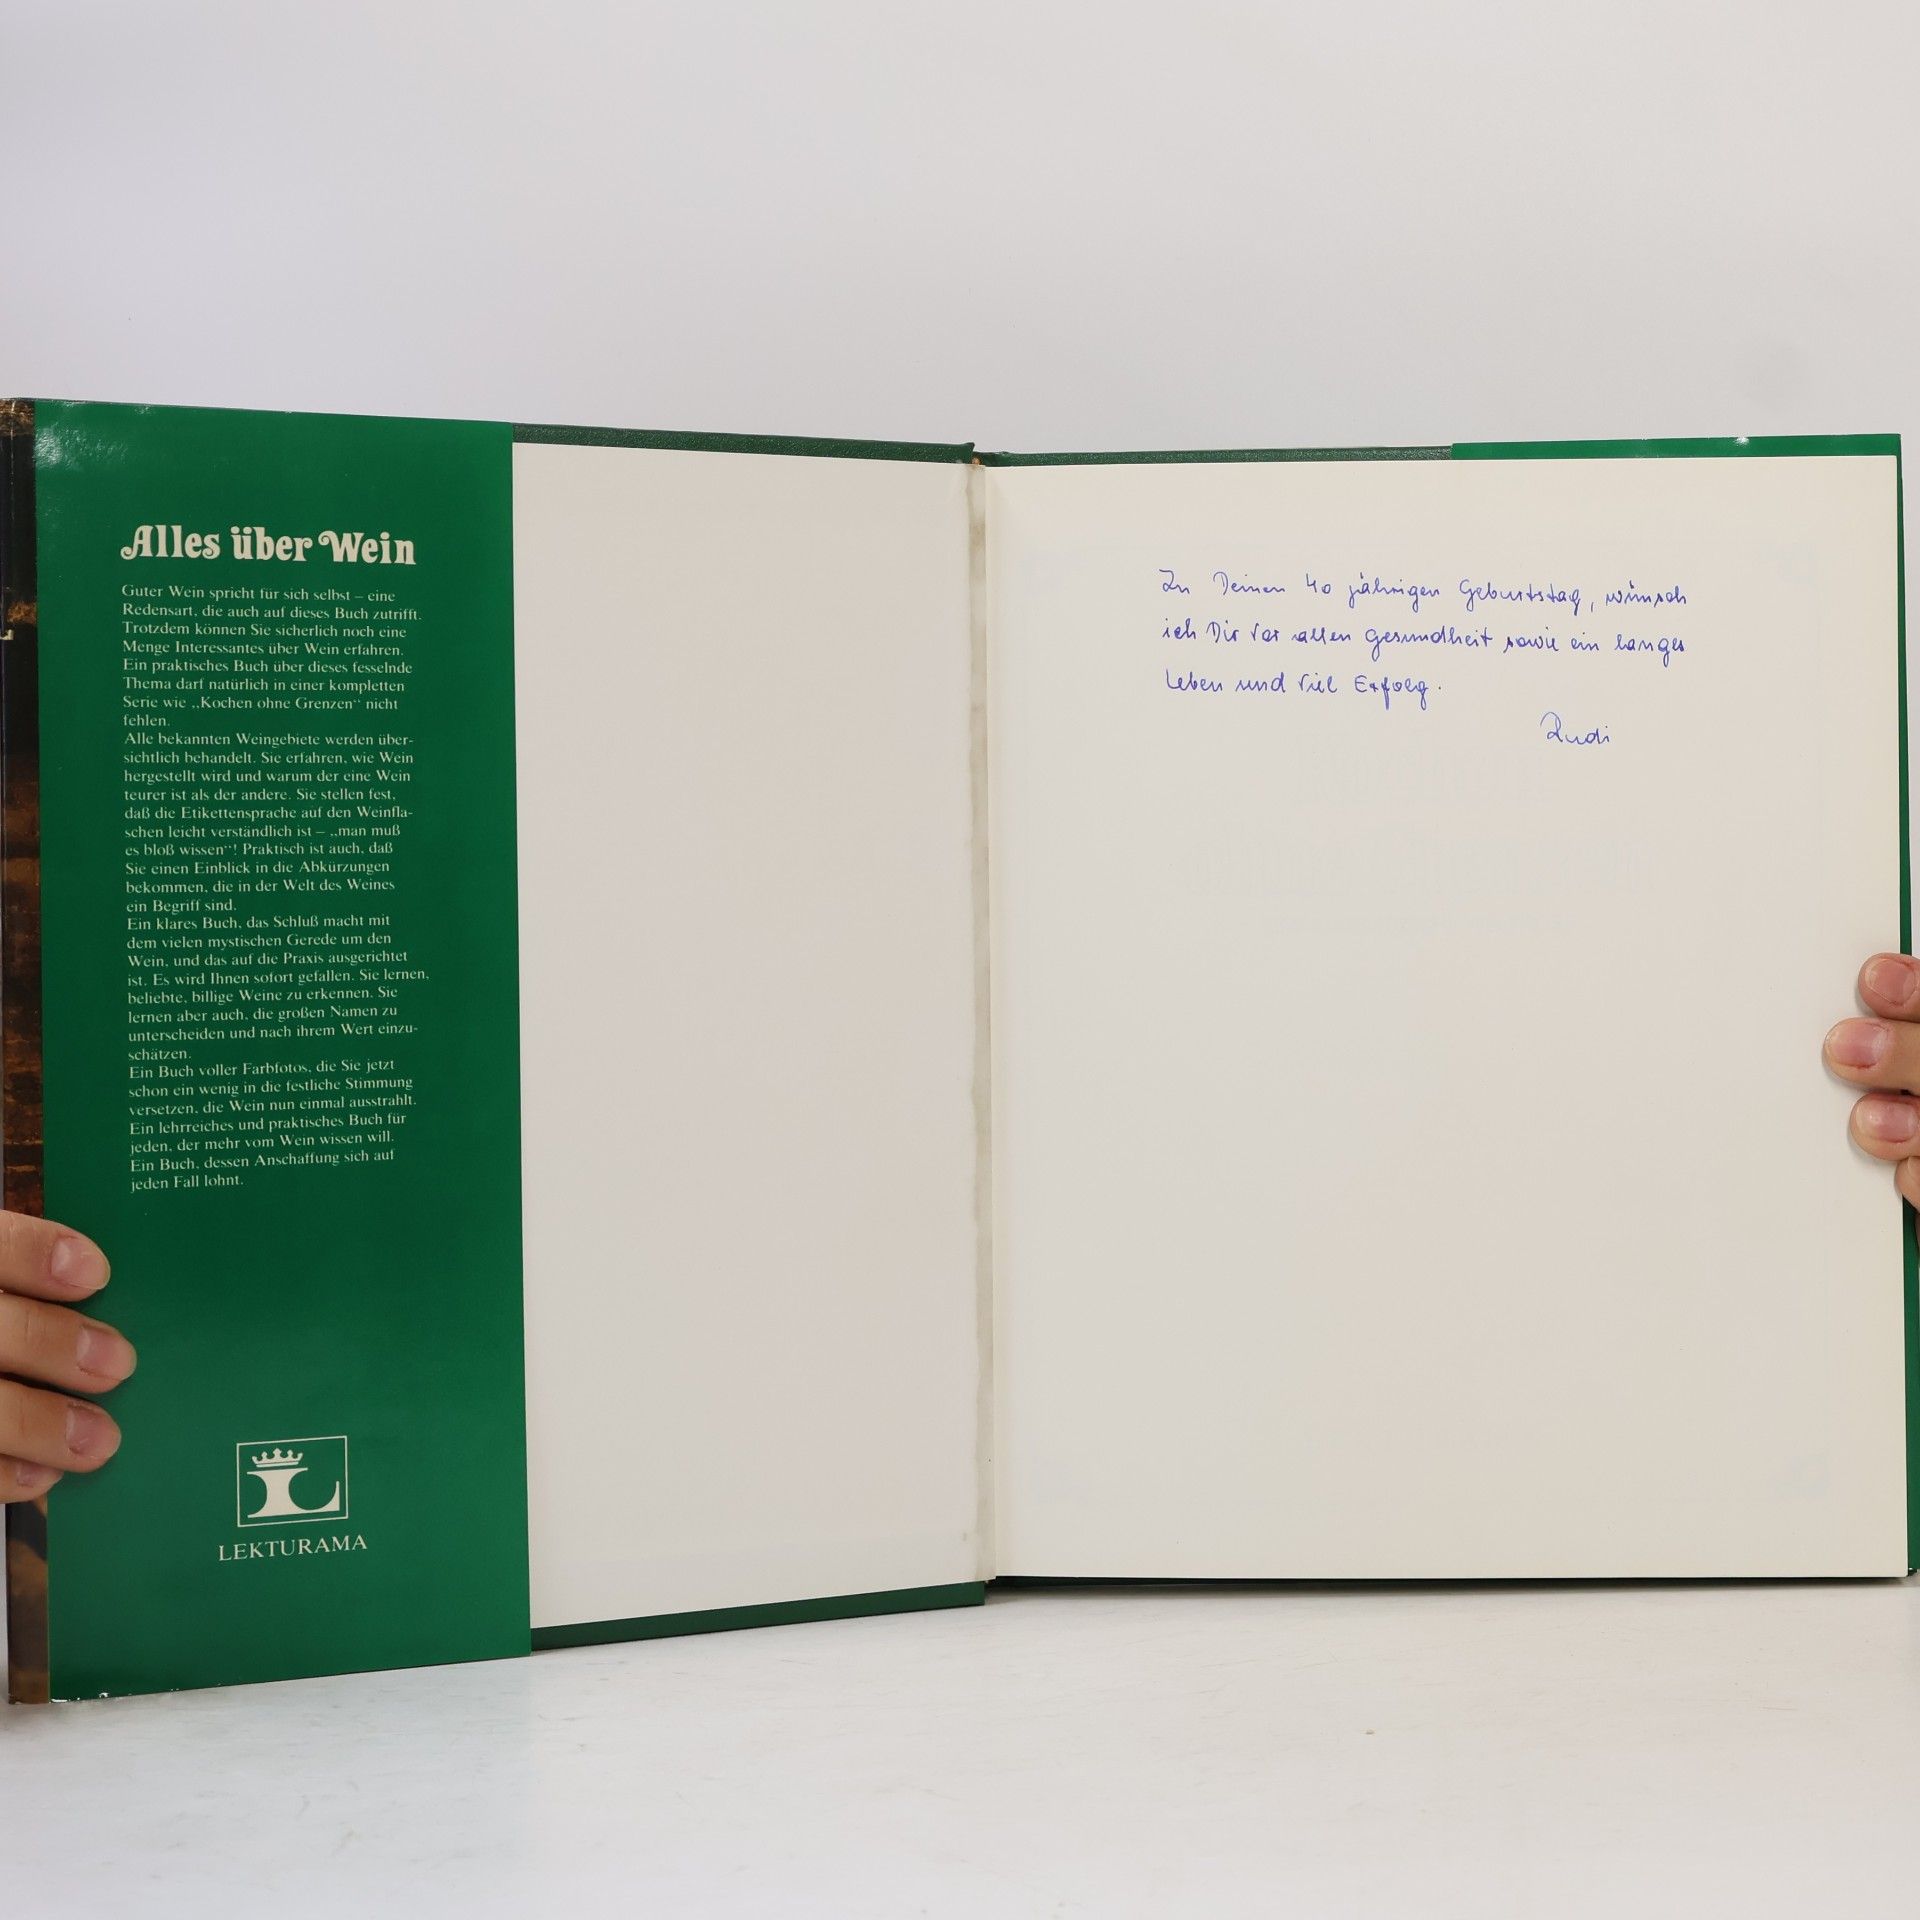 Alles über Wein
Guter Wein spricht für sich selbst – eine
Redensart, die auch auf dieses Buch zutrifft.
Trotzdem können Sie sicherlich noch eine
Menge Interessantes über Wein erfahren.
Ein praktisches Buch über dieses fesselnde
Thema darf natürlich in einer kompletten
Serie wie „Kochen ohne Grenzen“ nicht
fehlen.
Alle bekannten Weingebiete werden über-
sichtlich behandelt. Sie erfahren, wie Wein
hergestellt wird und warum der eine Wein
teurer ist als der andere. Sie stellen fest,
daß die Etikettensprache auf den Weinfla-
schen leicht verständlich ist – „man muß
es bloß wissen“! Praktisch ist auch, daß
Sie einen Einblick in die Abkürzungen
bekommen, die in der Welt des Weines
ein Begriff sind.
Ein klares Buch, das Schluß macht mit
dem vielen mystischen Gerede um den
Wein, und das auf die Praxis ausgerichtet
ist. Es wird Ihnen sofort gefallen. Sie lernen,
beliebte, billige Weine zu erkennen. Sie
lernen aber auch, die großen Namen zu
unterscheiden und nach ihrem Wert einzu-
schätzen.
Ein Buch voller Farbfotos, die Sie jetzt
schon ein wenig in die festliche Stimmung
versetzen, die Wein nun einmal ausstrahlt.
Ein lehrreiches und praktisches Buch für
jeden, der mehr vom Wein wissen will.
Ein Buch, dessen Anschaffung sich auf
jeden Fall lohnt.
L
LEKTURAMA
Zu Deinen 40 jährigen Geburtstag, wünsch
ich Dir vor allen Gesundheit sowie ein langes
Leben und viel Erfolg.
Rudi